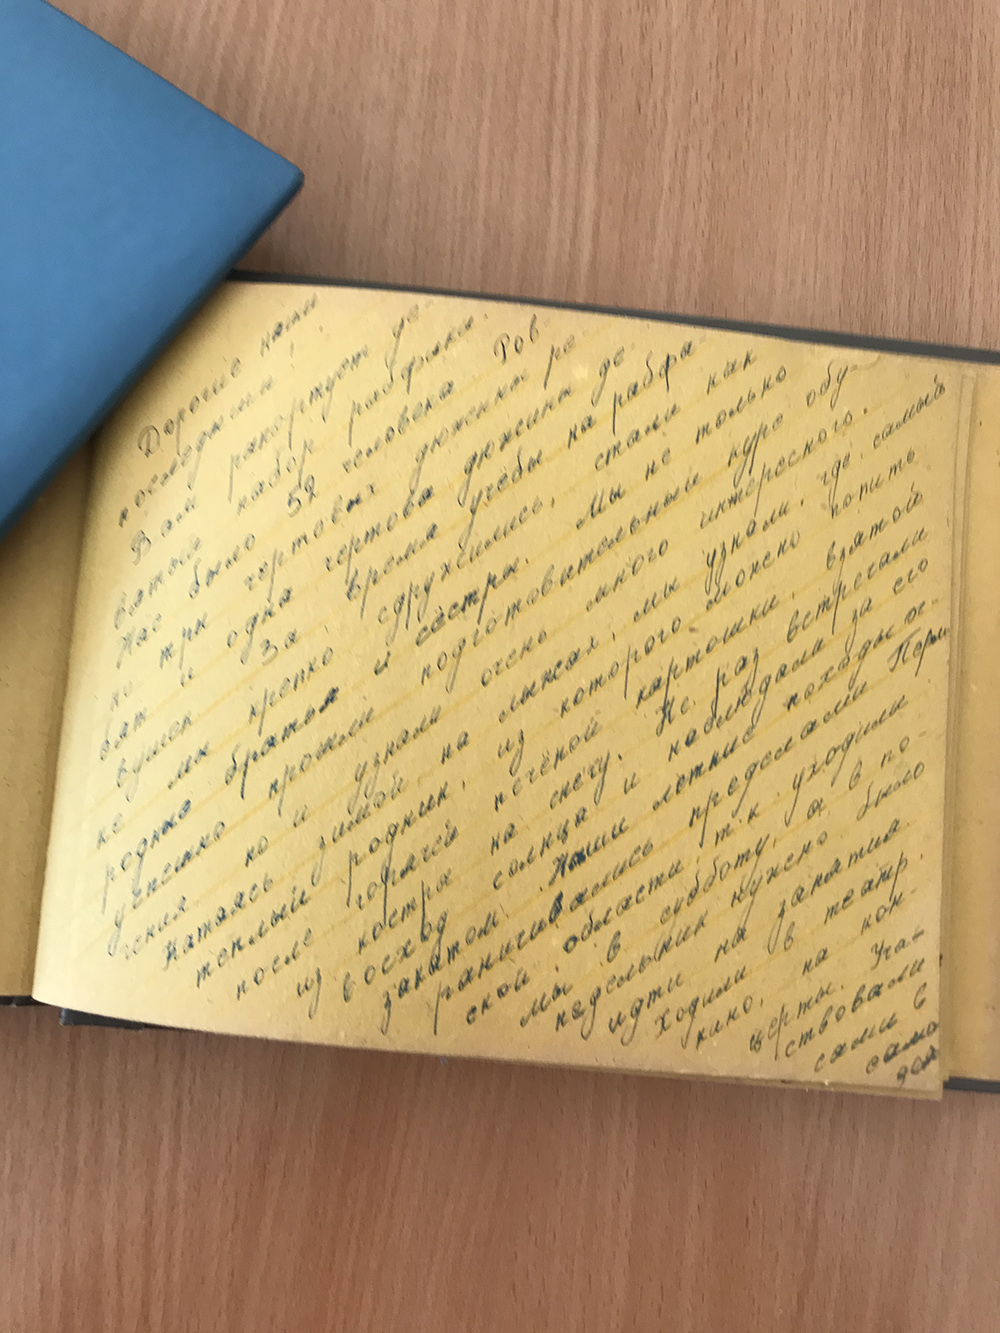 Дорогие наши
последыши!
Вам рапортует де-
вятый набор рабфака.
Нас было 52 человека. Ров
но три чертовых дюженки ре
бят и одна чертова дюжина де
вушек. За время учёбы на рабфа
ке мы крепко сдружились, стали как
родные братья и сёстры. Мы не только
успешно прошли подготовительный курс обу-
чения, но и узнали очень много интересного.
Катаясь зимой на лыжах, мы узнали, где самый
теплый родник, из которого можно попить
после горячей печёной картошки, взятой
из костра на снегу. Не раз встречали
восход солнца и наблюдали за его
закатом. Наши летние походы ог-
раничивались пределами Перм
ской области, т.к. уходили
мы в субботу, а в по-
недельник нужно было
идти на занятия.
Ходили в театр,
кино, на кон-
церты. Уча-
ствовали
сами в
само